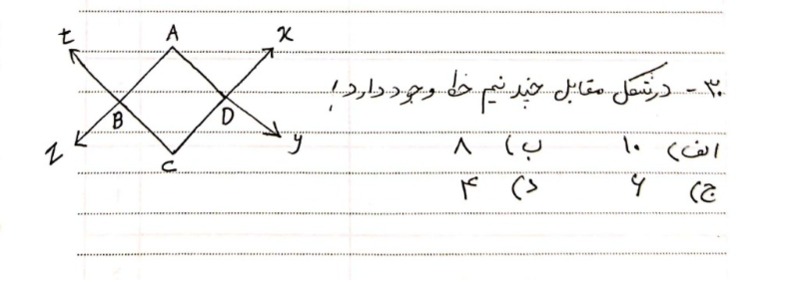 t A x
۳۰- در شکل مقابل چند نیم خط وجود دارد؟
B D
Z y
C
الف) ۱۰ ب) ۸
ج) ۶ د) ۴